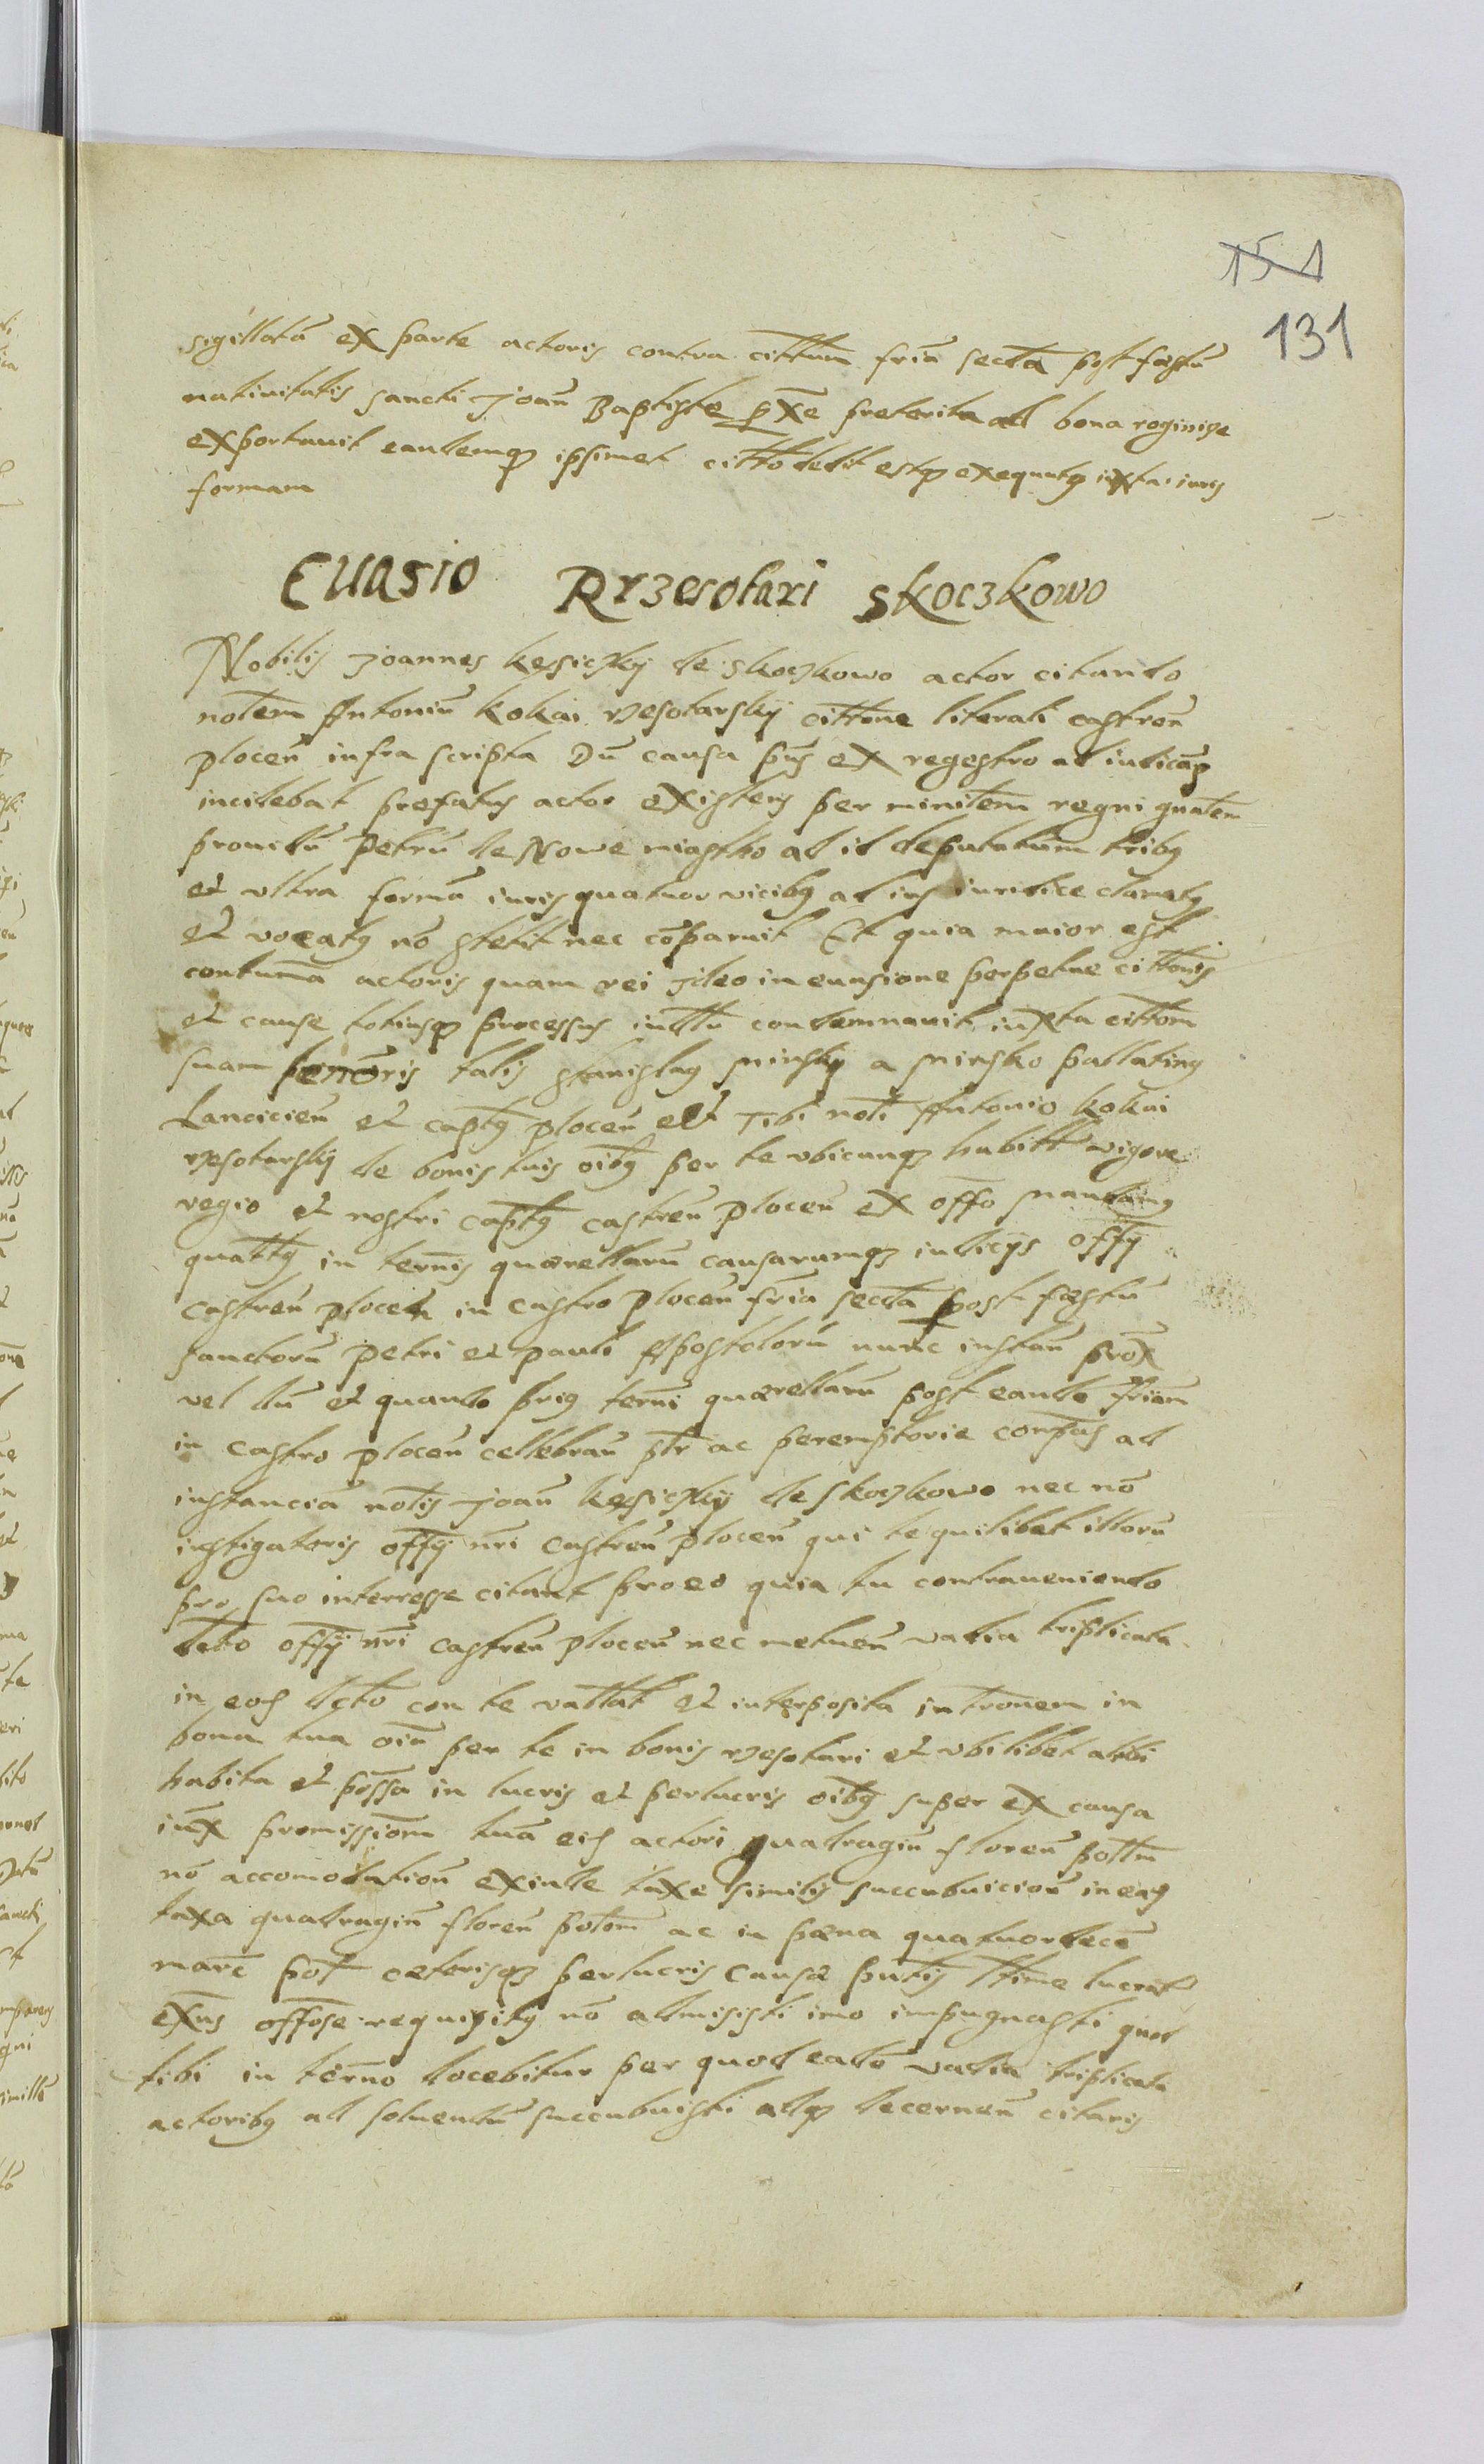 151
131
sigillatã ex parte actoris contra cittum friã sectã post festũ
natiuitatis sancti Joañ Baptiste pxe preterita ad bona roginice
exportauit eandemq ipsimet citto dedit estq exequutq iuxta iuris
formam
Euasio Rrzesotari Skoczkowo
Nobilis Joannes kęsiczkÿ de Skoczkowo actor citando
nobilem Antoniũ kokai rzesotarskÿ cittone literali castreñ
ploceñ infra scripta Dũ causa pñs ex regestro ad iudicãq
incidebat prefatus actor existens per ministrem regni gnalem
prouidũ Petrũ de Nowe miastho ad id deputatum tribq
et vltra formã iuris quatuor vicibq ad ius iuridice clamatq
et vocatq nõ stetit nec cõparuit Et quia maior est
contumã actoris quam rei Jdeo in euasione perpetue cittonis
et cause totiusq processus iudtũ condemnauit iuxta cittom
suam tenoris talis Stanislaq Minskÿ a Minsko pallatinq
Lancicieñ et captq ploceñ etc Tibi nobli Antonio kokai
rzesotarskÿ de bonis tuis oibq per te vbicunq habitt vigore
regio et nostri captq castreñ ploceñ ex offo mandamq
quattq in terminis quærellarũ causarumq iudicijs offÿ
castreñ ploceñ in castro ploceñ friã sectã post festũ
sanctorũ Petri et Pauli Apostolorũ nunc instañ prox
vel dũ et quando priq termi quærellarũ post eande friam
in castro ploceñ cellebrañ ptr ac peremptorie compas ad
instanciã noblis Joañ kęsiczkÿ de Skoczkowo nec nõ
instigatoris offÿ nri castreñ ploceñ qui te quilibet illorũ
pro suo interresse citant pro eo quia tu contraueniendo
decto offÿ nri castreñ ploceñ nec metueñ vadia triplicata
in eos dcto con te vallat et interposita intromem in
bona tua oiũ per te in bonis rzesotari et vbilibet alibi
habita et possa in lucris et perlucris oibq super ex causa
iux promissiom tuã eid actori quadragiñ floreñ polm
nõ accomodationũ exinde taxe similis succubuicioñ in eaq
taxa quadragiñ floreñ polom ac in pæna quatuordecẽ
marc pol cæterisq perlucris causæ pntis ltime lucrat
exñs offose requisitq nõ admisisti imo impugnasti quod
tibi in termo docebitur per quod eade vadia triplicata
actoribq ad soluendũ succubuisti adq decerneñ citaris